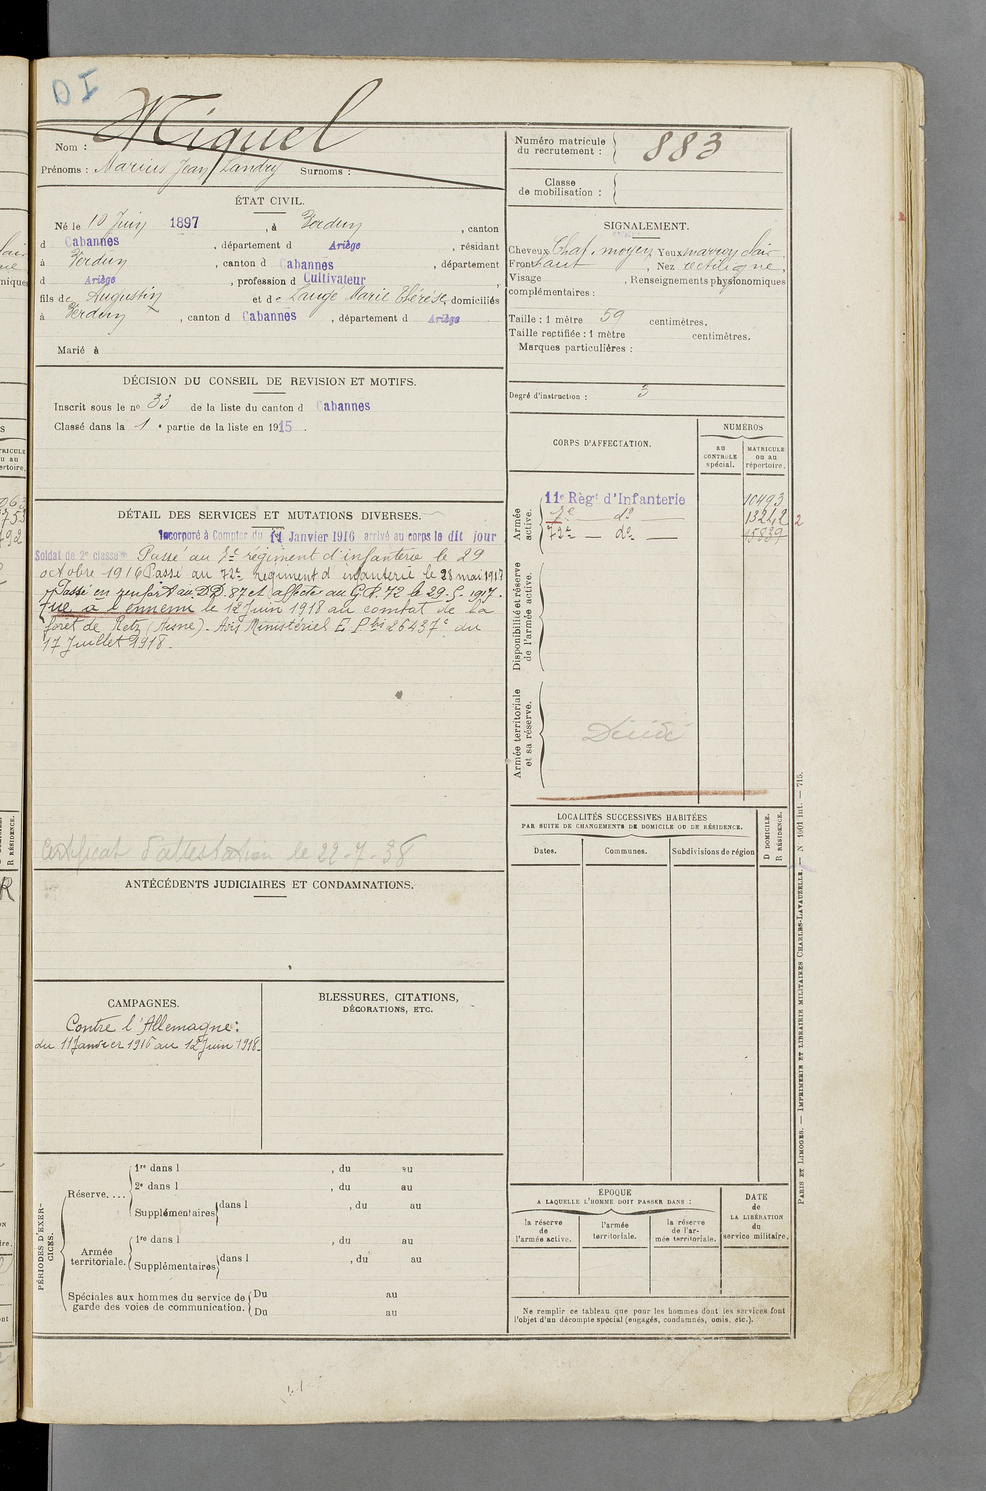 D I
Miquel
Nom :
Prénoms : Marius Jean Landry Surnoms :
ÉTAT CIVIL.
Né le 10 Juin 1897, à Verdun, canton
d Cabannes, département d Ariège, résidant
à Verdun, canton d Cabannes, département
d Ariège, profession d Cultivateur,
fils de Augustin et de Lauge Marie Thérèse, domiciliés
à Verdun, canton d Cabannes, département d Ariège
Marié à
DÉCISION DU CONSEIL DE REVISION ET MOTIFS.
Inscrit sous le nº 33 de la liste du canton d Cabannes
Classé dans la 1e partie de la liste en 1915.
DÉTAIL DES SERVICES ET MUTATIONS DIVERSES.
Incorporé à Compter du 11 Janvier 1916 arrivé au corps le dit jour
Soldat de 2e classe Passé au 7e régiment d'infanterie le 29
octobre 1916 Passé au 72e régiment d infanterie le 28 mai 1917
Passé en renfort au D.D. 87 et affecté au 72 le 29.5.1917.
Tué à l'ennemi le 12 Juin 1918 au combat de la
forêt de Retz (Aisne). Avis Ministériel E.P. bi 26437c du
17 Juillet 1918.
Certificat d'attestation le 22-7-38
ANTÉCÉDENTS JUDICIAIRES ET CONDAMNATIONS.
CAMPAGNES.
Contre l'Allemagne :
du 11 Janvier 1916 au 12 Juin 1918.
BLESSURES, CITATIONS,
DÉCORATIONS, ETC.
PÉRIODES D'EXERCICES.
Réserve....
1re dans l , du au
2e dans l , du au
Supplémentaires dans l , du au
Armée territoriale.
1re dans l , du au
Supplémentaires dans l , du au
Spéciales aux hommes du service de Du au
garde des voies de communication. Du au
Numéro matricule
du recrutement : 883
Classe
de mobilisation :
SIGNALEMENT.
Cheveux Chat. moyen Yeux marron clair
Front haut, Nez rectiligne,
Visage , Renseignements physionomiques
complémentaires :
Taille : 1 mètre 59 centimètres.
Taille rectifiée : 1 mètre centimètres.
Marques particulières :
Degré d'instruction : 3
CORPS D'AFFECTATION.
NUMÉROS
AU CONTRÔLE spécial.
MATRICULE ou au répertoire.
Armée active.
11e Régt d'Infanterie 10493
7e — do — 13242 2
72e — do — 15839
Disponibilité et réserve de l'armée active.
Armée territoriale et sa réserve.
Décédé
LOCALITÉS SUCCESSIVES HABITÉES
PAR SUITE DE CHANGEMENTS DE DOMICILE OU DE RÉSIDENCE.
D DOMICILE.
R RÉSIDENCE.
Dates. Communes. Subdivisions de région
ÉPOQUE
A LAQUELLE L'HOMME DOIT PASSER DANS :
la réserve de l'armée active.
l'armée territoriale.
la réserve de l'armée territoriale.
DATE
de
LA LIBÉRATION
du
service militaire.
Ne remplir ce tableau que pour les hommes dont les services font
l'objet d'un décompte spécial (engagés, condamnés, omis, etc.).
PARIS ET LIMOGES. — IMPRIMERIE ET LIBRAIRIE MILITAIRES CHARLES-LAVAUZELLE. — Nº 1901 int. — 715.